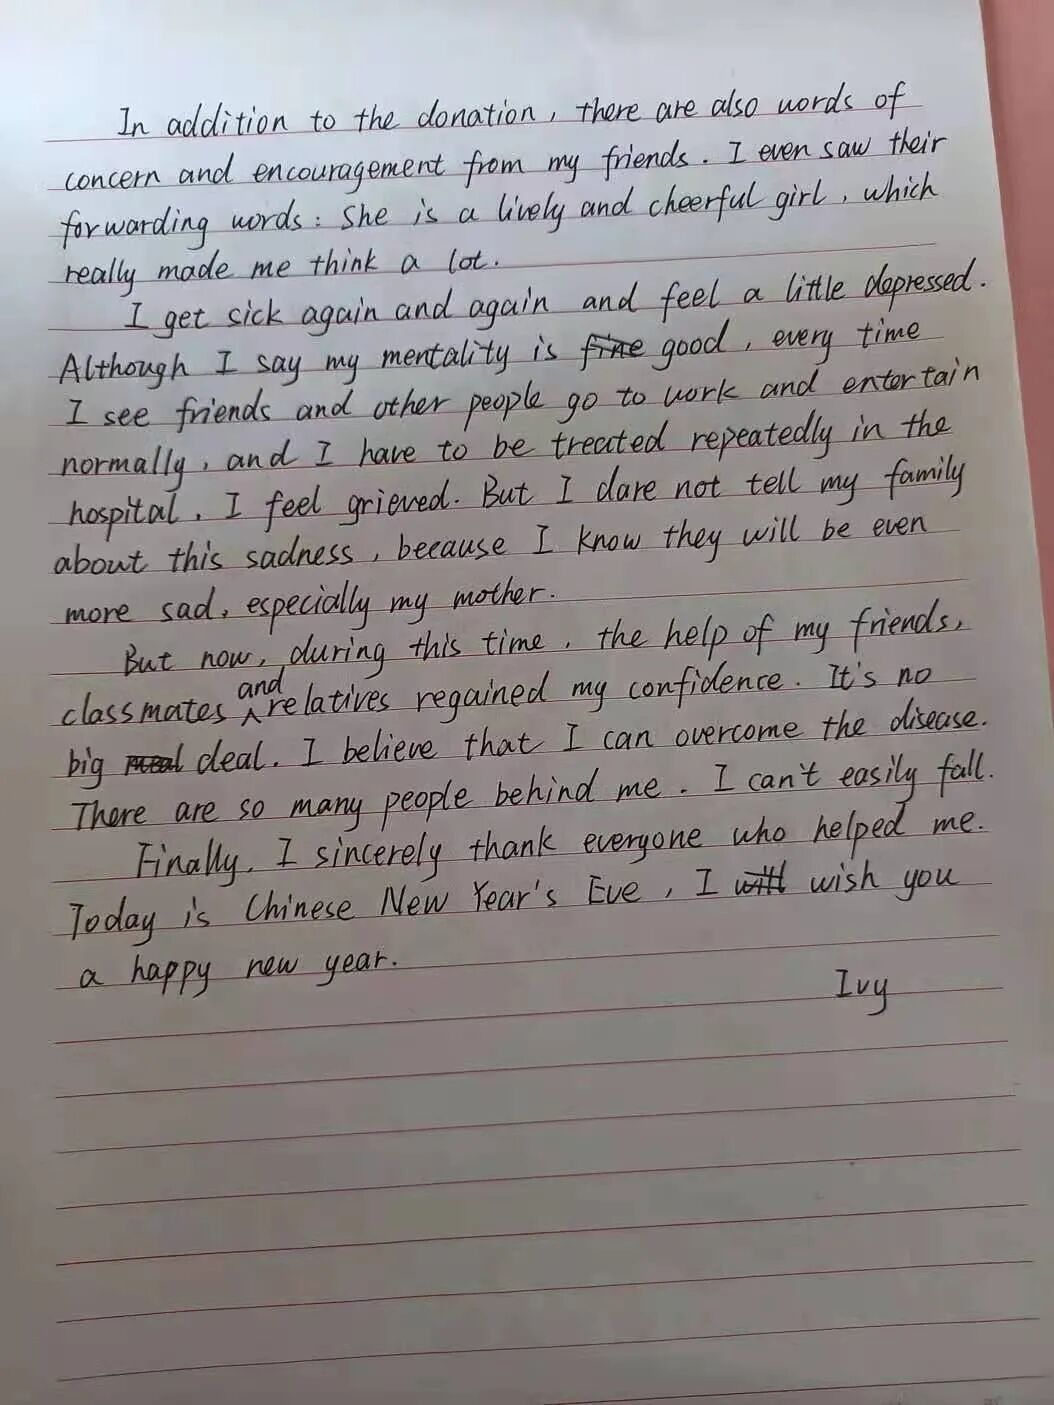 In addition to the donation, there are also words of
concern and encouragement from my friends. I even saw their
forwarding words: She is a lively and cheerful girl, which
really made me think a lot.
I get sick again and again and feel a little depressed.
Although I say my mentality is fine good, every time
I see friends and other people go to work and entertain
normally, and I have to be treated repeatedly in the
hospital, I feel grieved. But I dare not tell my family
about this sadness, because I know they will be even
more sad, especially my mother.
But now, during this time, the help of my friends,
classmates and relatives regained my confidence. It's no
big meal deal. I believe that I can overcome the disease.
There are so many people behind me. I can't easily fall.
Finally, I sincerely thank everyone who helped me.
Today is Chinese New Year's Eve, I will wish you
a happy new year.
Ivy